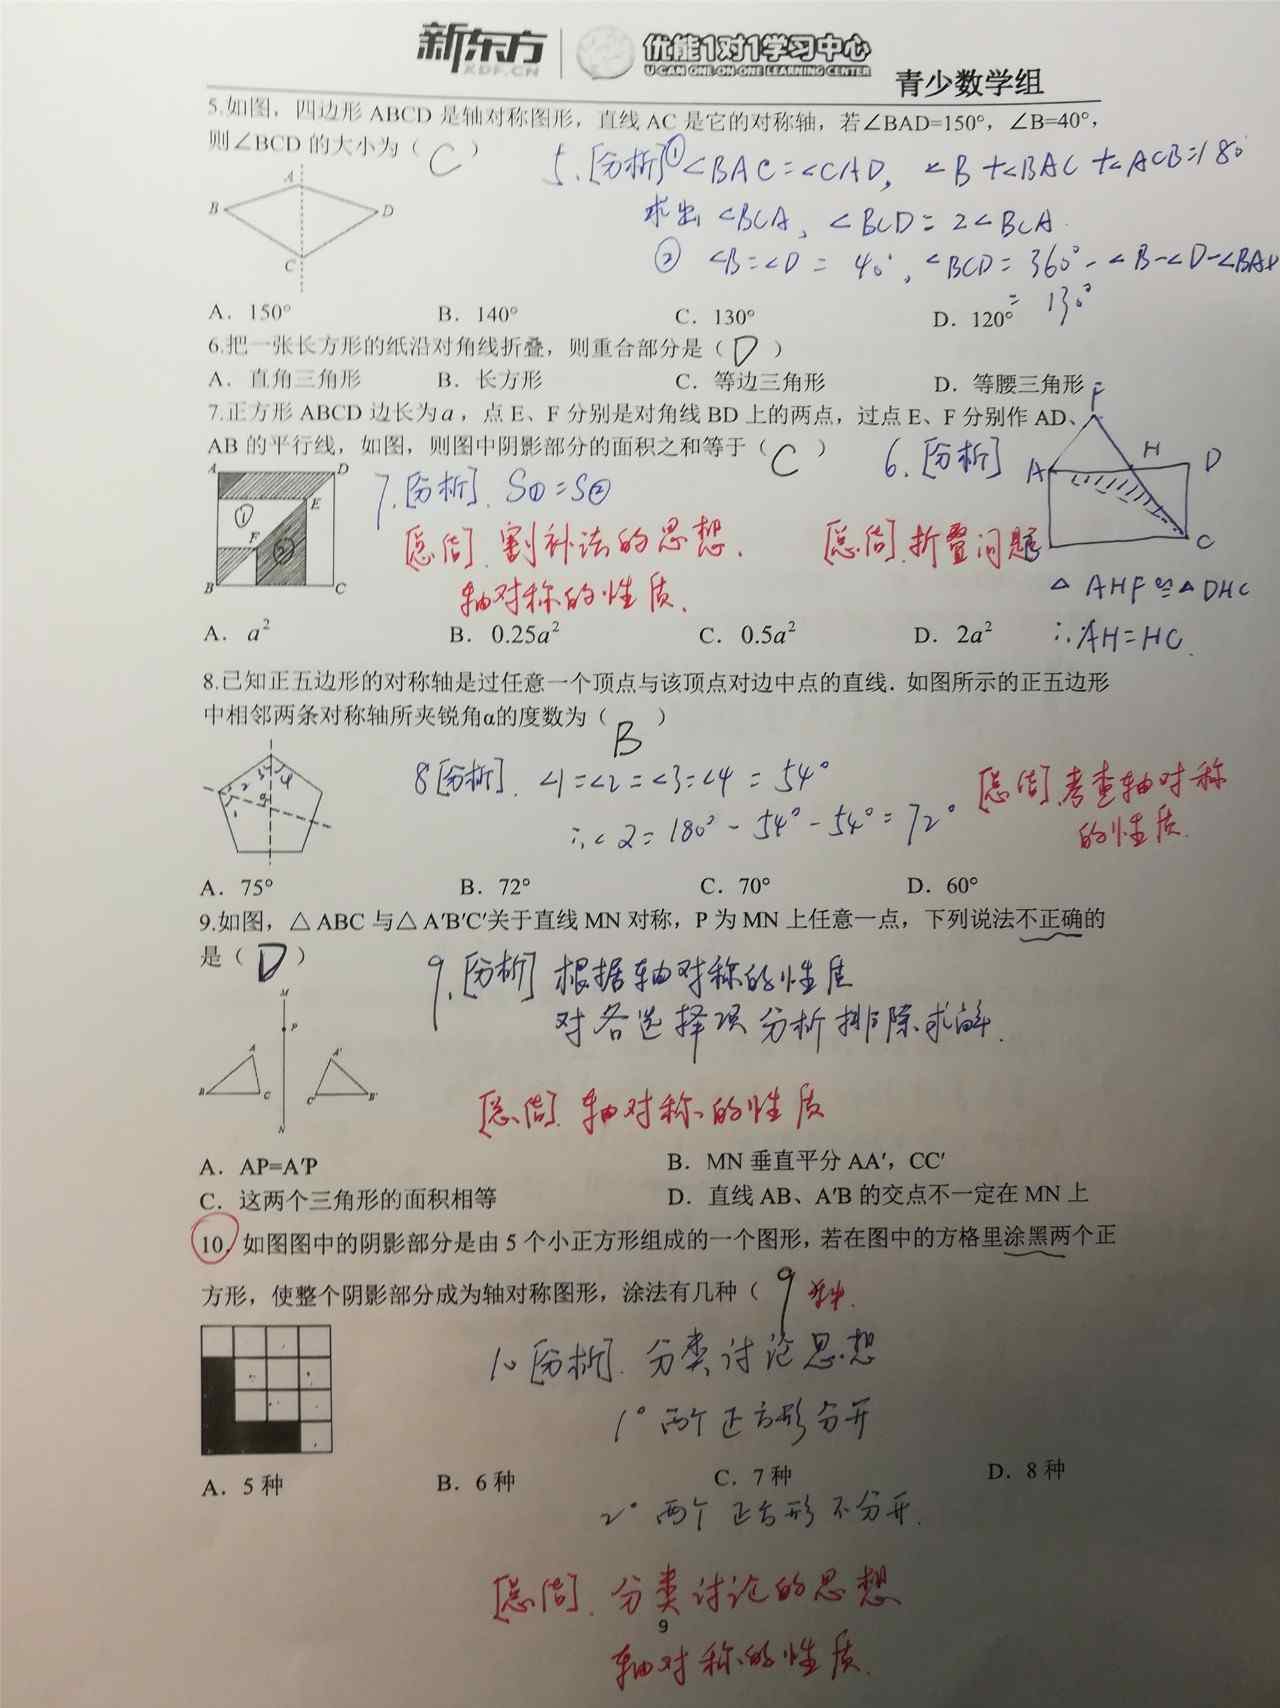 新东方
XDF.CN
优能1对1学习中心
U CAN ONE-ON-ONE LEARNING CENTER
青少数学组
5.如图，四边形 ABCD 是轴对称图形，直线 AC 是它的对称轴，若∠BAD=150°，∠B=40°，
则∠BCD 的大小为（ C ）
5.[分析]①∠BAC=∠CAD, ∠B+∠BAC+∠ACB=180°
求出∠BCA, ∠BCD=2∠BCA.
②∠B=∠D=40°, ∠BCD=360°-∠B-∠D-∠BAD
=130°
A
B
D
C
A．150°
B．140°
C．130°
D．120°
6.把一张长方形的纸沿对角线折叠，则重合部分是（ D ）
A．直角三角形
B．长方形
C．等边三角形
D．等腰三角形
7.正方形 ABCD 边长为a，点 E、F 分别是对角线 BD 上的两点，过点 E、F 分别作 AD、
AB 的平行线，如图，则图中阴影部分的面积之和等于（ C ）
A
D
E
①
F
②
B
C
7.[分析]. S①=S②
[总结].割补法的思想.
轴对称的性质.
6.[分析]
F
A
H
D
C
[总结].折叠问题
△AHF≌△DHC
∴AH=HC.
A．a²
B．0.25a²
C．0.5a²
D．2a²
8.已知正五边形的对称轴是过任意一个顶点与该顶点对边中点的直线．如图所示的正五边形
中相邻两条对称轴所夹锐角α的度数为（ B ）
8[分析]. ∠1=∠2=∠3=∠4=54°
∴∠2=180°-54°-54°=72°
[总结].考查轴对称
的性质.
A．75°
B．72°
C．70°
D．60°
9.如图，△ABC 与△A′B′C′关于直线 MN 对称，P 为 MN 上任意一点，下列说法不正确的
是（ D ）
9.[分析] 根据轴对称的性质
对各选择项分析排除求解.
M
P
A
A′
B
C
C′
B′
N
[总结].轴对称的性质
A．AP=A′P
B．MN 垂直平分 AA′，CC′
C．这两个三角形的面积相等
D．直线 AB、A′B 的交点不一定在 MN 上
10．如图图中的阴影部分是由 5 个小正方形组成的一个图形，若在图中的方格里涂黑两个正
方形，使整个阴影部分成为轴对称图形，涂法有几种（ 9 种.
10[分析].分类讨论思想
1°两个正方形分开
A．5 种
B．6 种
C．7 种
D．8 种
2°两个正方形不分开.
[总结].分类讨论的思想
9
轴对称的性质.